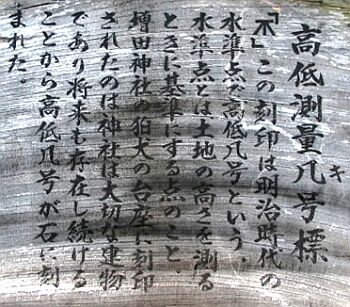 高低測量几号標
「不」この刻印は明治時代の
水準点で高低几号という。
水準点とは土地の高さを測る
ときに基準にする点のこと。
増田神社の狛犬の台座に刻印
されたのは神社は大切な建物
であり将来も存在し続ける
ことから高低几号が石に刻
まれた。